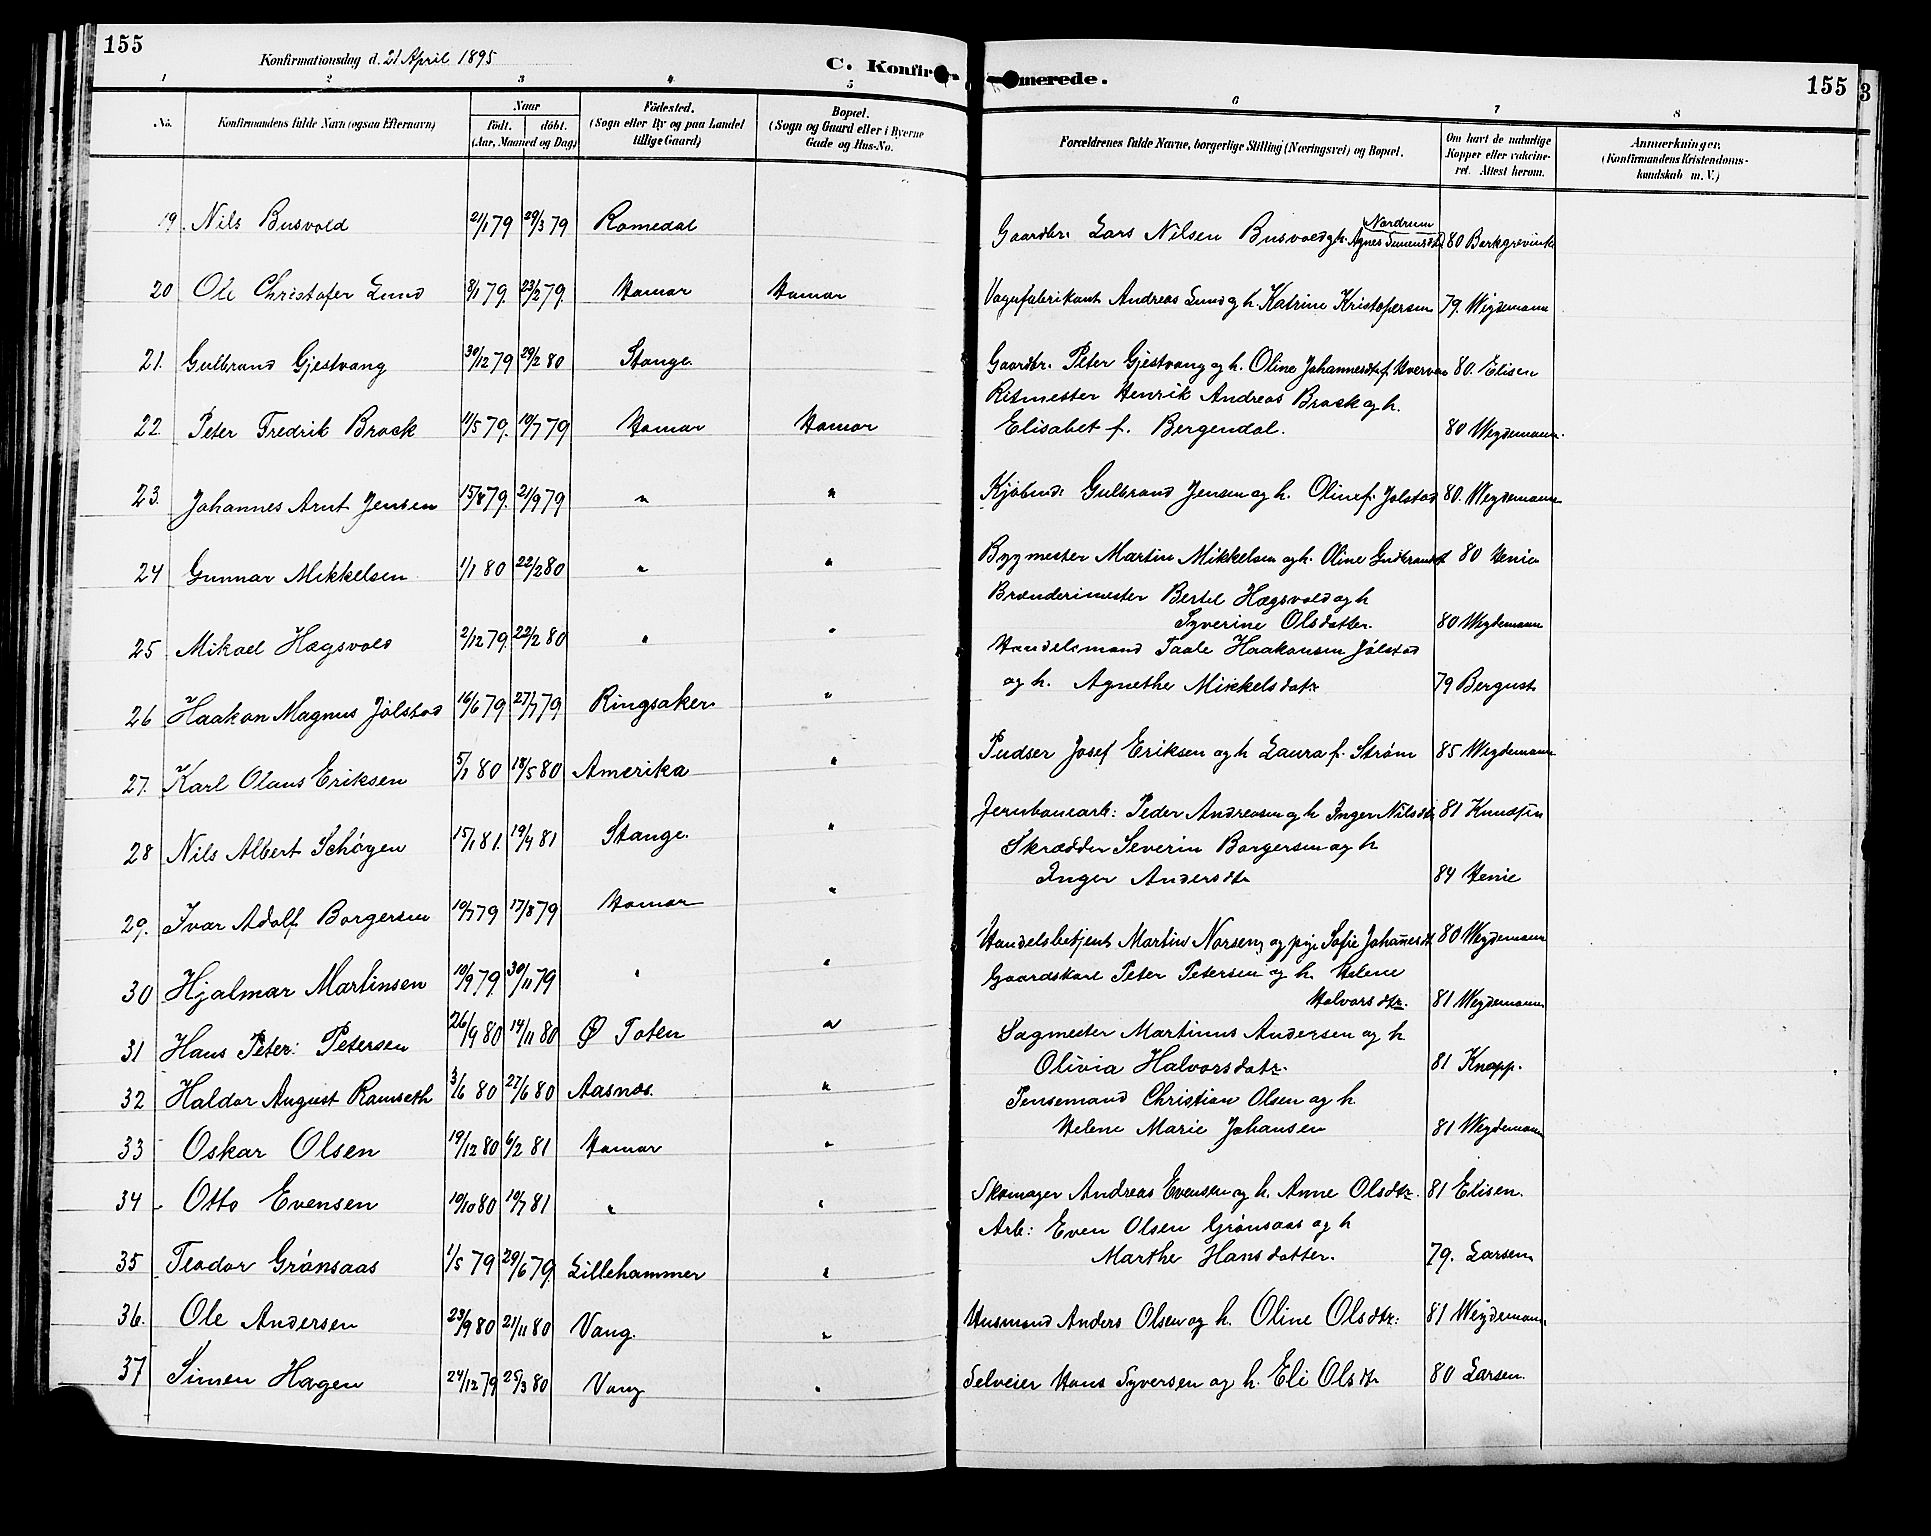 155
Konfirmationsdag d. 21 April 1895
C. Konfirmerede.
155
3
1 2 3 4 5 6 7 8
No. Konfirmandens fulde Navn (ogsaa Efternavn) Naar født. døbt. (Aar, Maaned og Dag) Fødested. (Sogn eller By og paa Landet tillige Gaard) Bopæl. (Sogn og Gaard eller i Byerne Gade og Hus-No. Forældrenes fulde Navne, borgerlige Stilling (Næringsvei) og Bopæl. Om havt de naturlige Kopper eller vaccineret. Attest herom. Anmærkninger. (Konfirmandens Kristendomskundskab m. V.)
19. Nils Busvold 21/1 79 29/3 79 Romedal Gaardbr: Lars Nilsen Busvold og h. Agnes Simensdtr Nordrum 80
20 Ole Christofer Lund 8/1 79. 23/2 79. Hamar Hamar Vognfabrikant Andreas Lund og h. Katrine Kristofersen 79. Weydemann
21. Gulbrand Gjestvang 30/12 79 29/2 80 Stange. Gaardbr. Peter Gjestvang og h. Oline Johannesdt f. 80. Elisen
22. Peter Fredrik Brock 11/5 79. 19/7 79 Hamar Hamar Ritmester Henrik Andreas Brock og h.
Elisabet f. Bergendal. 80 Weydemann.
23. Johannes Arnt Jensen 15/8 79. 21/9 79 " " Kjøbmd: Gulbrand Jensen og h. Oline f. Jølstad 80. Weydemann
24 Gunnar Mikkelsen 1/1 80 22/2 80 " " Bygmester Martin Mikkelsen og h. Oline Gudbrandsdt 80 Henie
25 Mikael Hægsvold 2/12 79. 22/2 80 " " Brænderimester Bertel Hægsvold og h
Syverine Olsdatter. 80 Weydemann
26 Haakon Magnus Jølstad 16/6 79 27/7 79 Ringsaker. " Handelsmand Taale Haakonsen Jølstad
og h. Agnethe Mikkelsdatr 79 Bergust
27. Karl Olaus Eriksen 5/1 80 18/5 80 Amerika " Pudser Josef Eriksen og h Laura f. Strøm 85 Weydemann
28 Nils Albert Schøyen 15/1 81. 19/4 81 Stange. " Jernbanearb: Peder Andreasen og h Inger Nilsdtr 81 Knudsen
29. Ivar Adolf Borgersen 10/7 79 17/8 79 Hamar " Skrædder Severin Borgersen og h
Inger Andersdtr 84 Henie
30 Hjalmar Martinsen 10/9 79. 30/11 79 " " Handelsbetjent Martin Norseng og pige Sofie Johannesdt. 80 Weydemann
31 Hans Peter: Petersen 26/9 80 14/11 80 Ø Toten " Gaardskarl Peter Petersen og h. Helene
Halvorsdtr. 81 Weydemann
32 Haldor August Ramseth 3/6 80 27/6 80 Aasnæs. " Sagmester Martinus Andersen og h
Olivia Halvorsdatr. 81 Knapp.
33 Oskar Olsen 19/12 80 6/2 81 Hamar " Pensemand Christian Olsen og h
Helene Marie Johansen 81 Weydemann
34 Otto Evensen 10/10 80 10/7 81 " " Skomager Andreas Evensen og h. Anne Olsdtr. 81 Elisen.
35 Teodor Grønsaas 1/5 79 29/6 79. Lillehammer " Arb: Even Olsen Grønsaas og h
Marthe Hansdatter. 79. Larsen
36. Ole Andersen 23/9 80 21/11 80 Vang. " Husmand Anders Olsen og h. Oline Olsdtr: 81 Weydemann.
37 Simen Hagen 24/12 79 25/3 80 Vang " Selveier Hans Syversen og h. Eli Olsdt 80 Larsen.